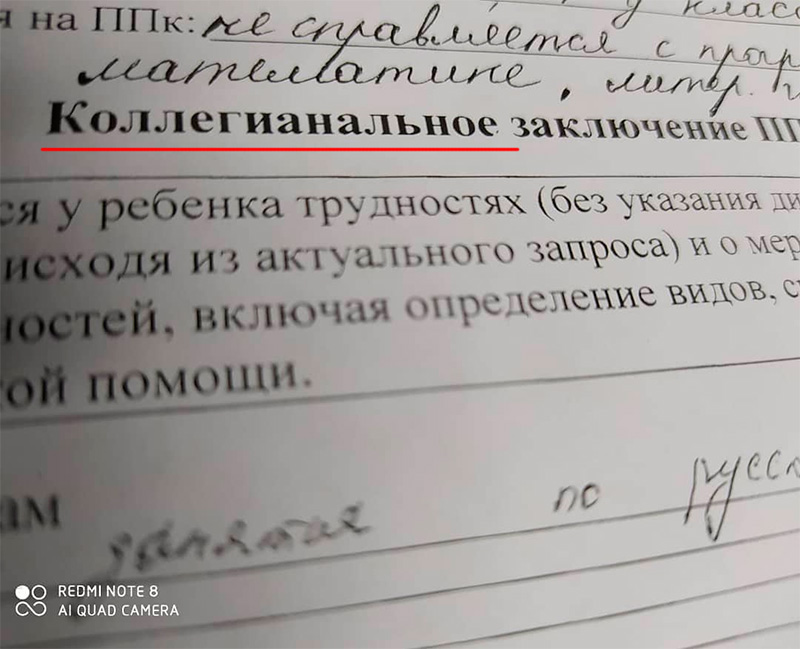 на ППк: не справляется с
математике, литер.
Коллегианальное заключение
ся у ребенка трудностях (без указания ди
исходя из актуального запроса) и о мер
ностей, включая определение видов, с
ой помощи.
ам занятия по русс
REDMI NOTE 8
AI QUAD CAMERA